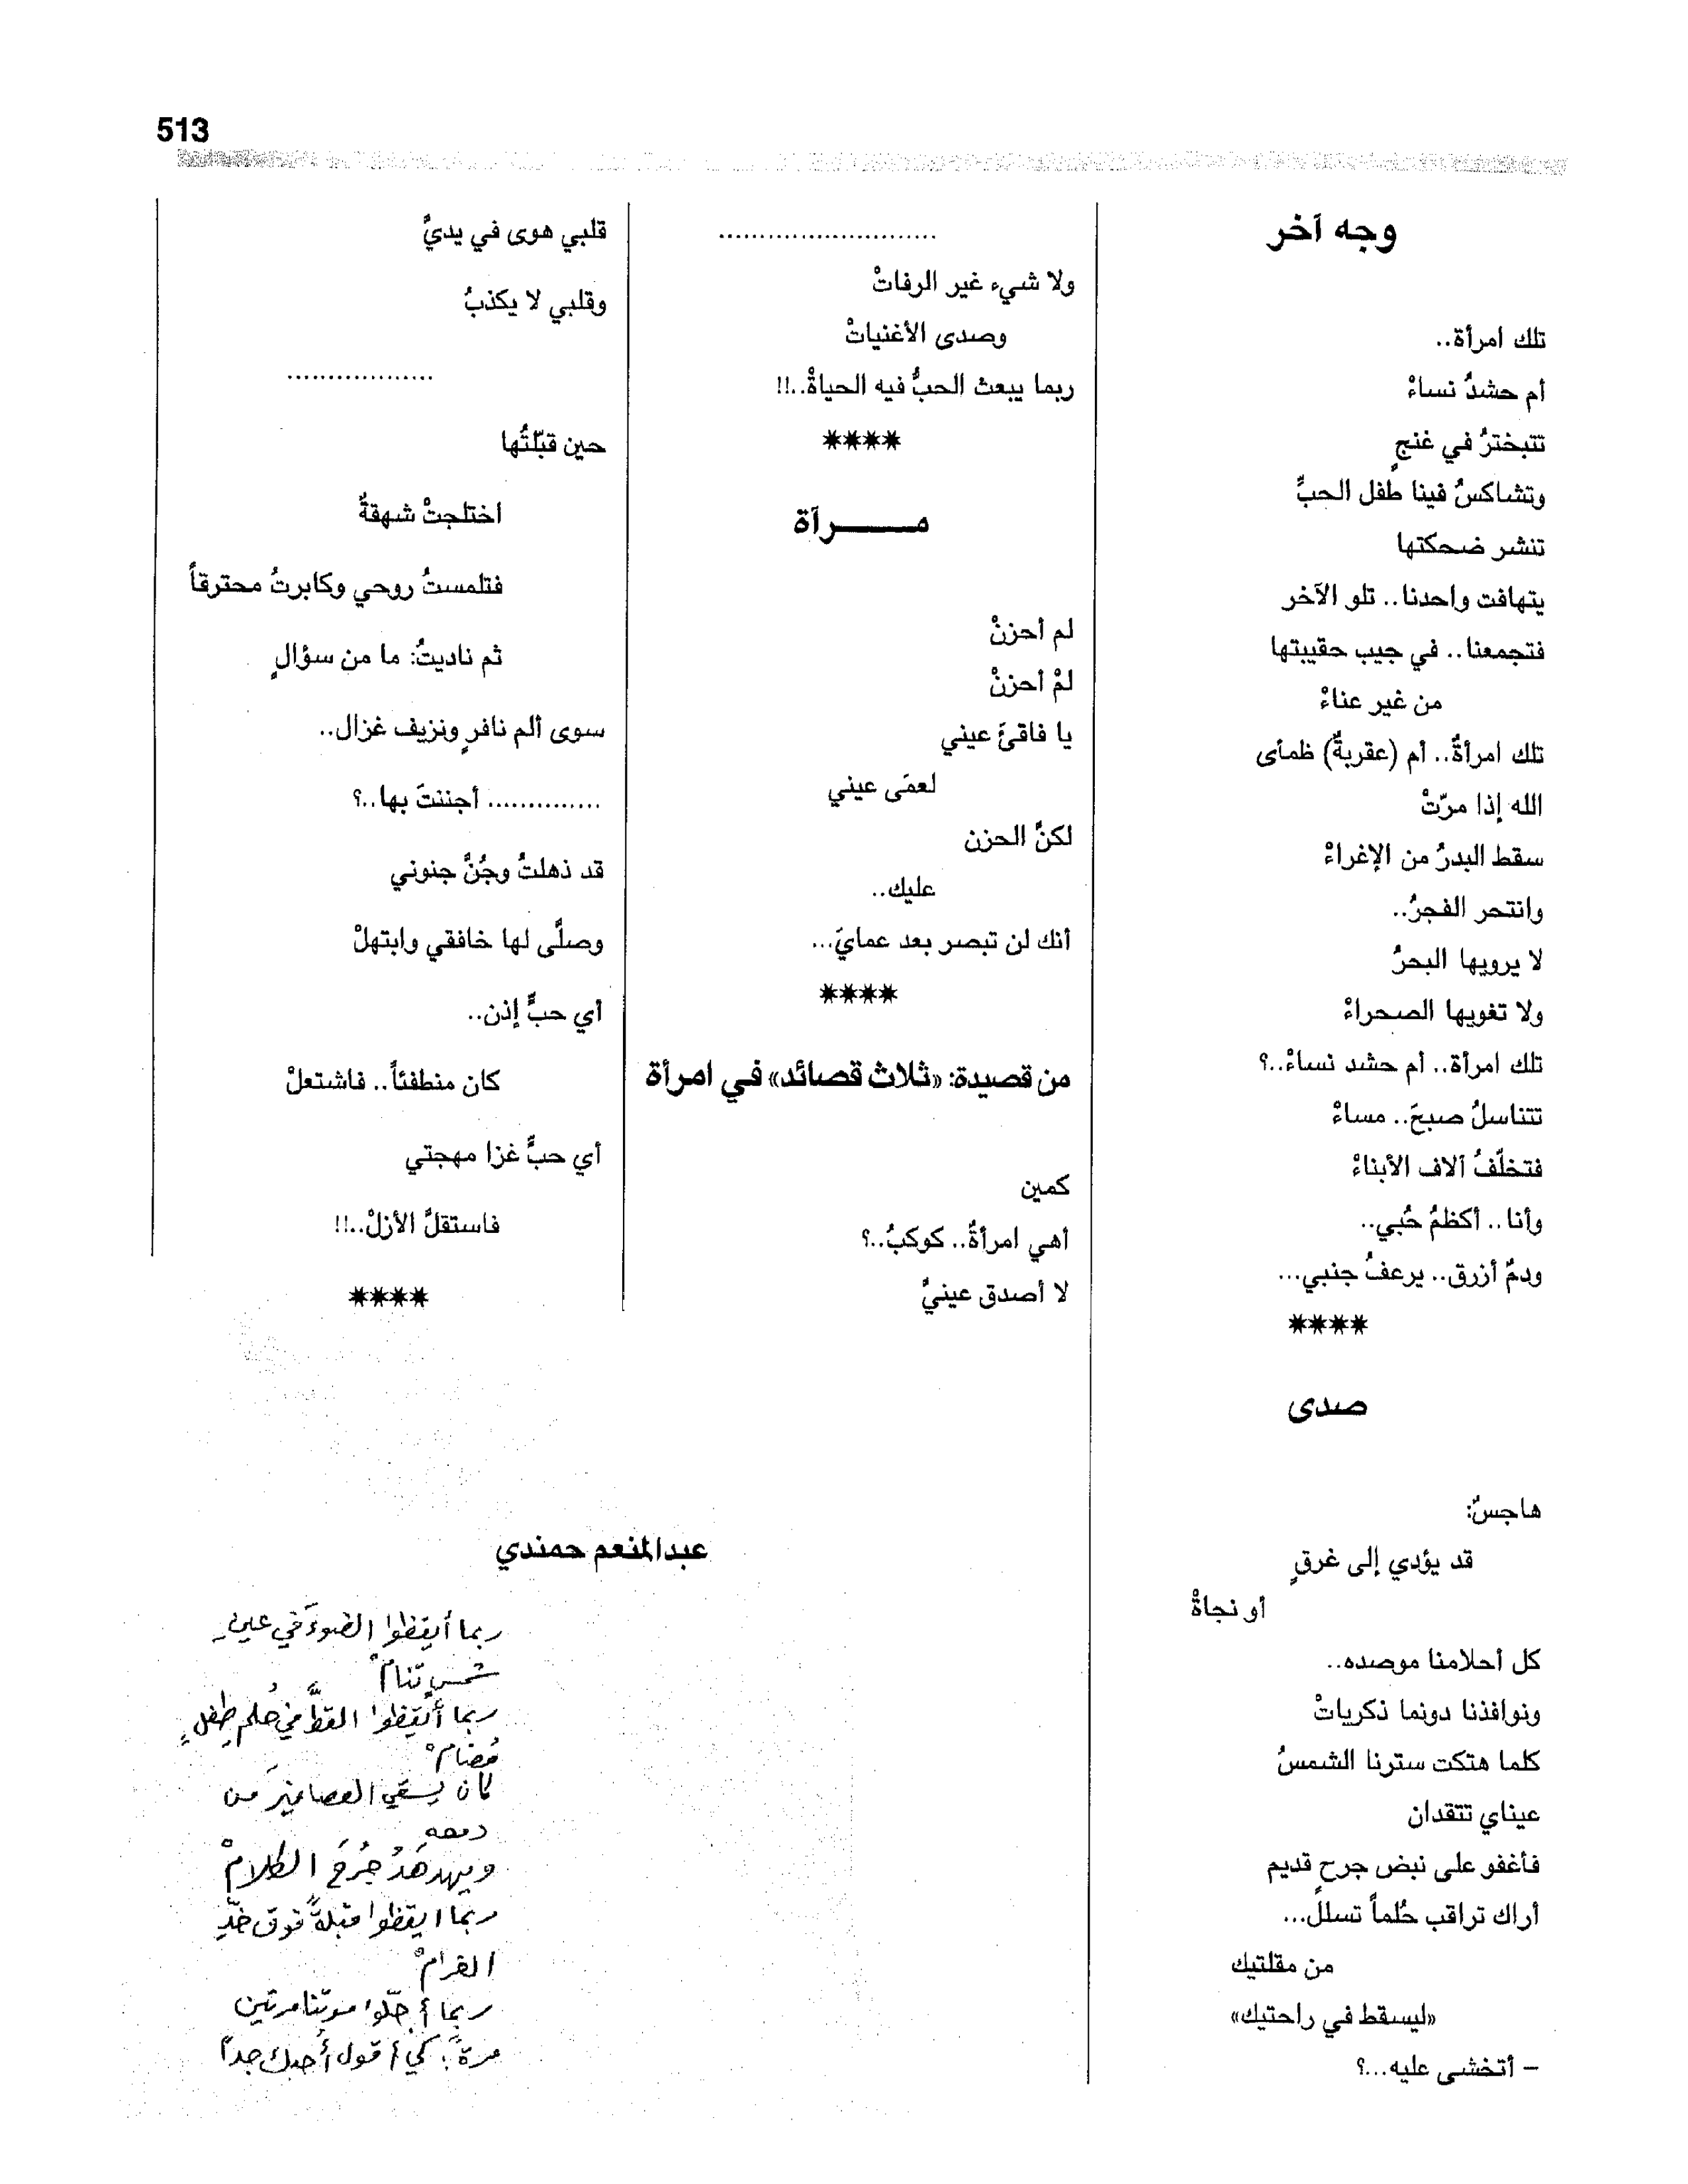 513
وجه آخر
تلك امرأة..
أم حشدُ نساءْ
تتبخترُ في غنجٍ
وتشاكسُ فينا طفل الحبِّ
تنشر ضحكتها
يتهافت واحدنا.. تلو الآخر
فتجمعنا.. في جيب حقيبتها
من غير عناءْ
تلك امرأةٌ.. أم (عقربةٌ) ظمأى
الله إذا مرّتْ
سقط البدرُ من الإغراءْ
وانتحر الفجرُ..
لا يرويها البحرُ
ولا تغويها الصحراءْ
تلك امرأة.. أم حشد نساءْ..؟
تتناسلُ صبحَ.. مساءْ
فتخلّفُ آلاف الأبناءْ
وأنا.. أكظمُ حُبي..
ودمٌ أزرق.. يرعفُ جنبي...
****
صدى
هاجسٌ:
قد يؤدي إلى غرقٍ
أو نجاةْ
كل أحلامنا موصده..
ونوافذنا دونما ذكرياتْ
كلما هتكت سترنا الشمسُ
عيناي تتقدان
فأغفو على نبض جرحٍ قديم
أراك تراقب حُلماً تسللَ...
من مقلتيك
«ليسقط في راحتيك»
– أتخشى عليه...؟
...........................
ولا شيء غير الرفاتْ
وصدى الأغنياتْ
ربما يبعث الحبُّ فيه الحياةْ..!!
****
مـــــرآة
لم أحزنْ
لمْ أحزنْ
يا فاقئَ عيني
لعمَى عيني
لكنَّ الحزن
عليك..
أنك لن تبصر بعد عمايَ...
****
من قصيدة: «ثلاث قصائد» في امرأة
كمين
أهي امرأةٌ.. كوكبٌ..؟
لا أصدق عينيَّ
قلبي هوى في يديَّ
وقلبي لا يكذبُ
..................
حين قبّلتُها
اختلجتْ شهقةٌ
فتلمستُ روحي وكابرتُ محترقاً
ثم ناديتُ: ما من سؤالٍ
سوى ألم نافرٍ ونزيف غزال..
.............. أجننتَ بها..؟
قد ذهلتُ وجُنَّ جنوني
وصلَّى لها خافقي وابتهلْ
أي حبٍّ إذن..
كان منطفئاً.. فاشتعلْ
أي حبٍّ غزا مهجتي
فاستقلَّ الأزلْ..!!
****
عبدالمنعم حمندي
ربما أيقظوا الضوءَ في عين
شمسٍ تنامْ
ربما أيقظوا القطَّ في حُلم طِفلٍ
مُضامْ
كان يسقي العصافيرَ من
دمعه
ويهدهدُ جُرحَ الظلامْ
ربما ايقظوا قبلةً فوق خدّ
الغرامْ
ربما أجّلوا موتنا مرتين
مرةً: كي أقول أُحبك جداً